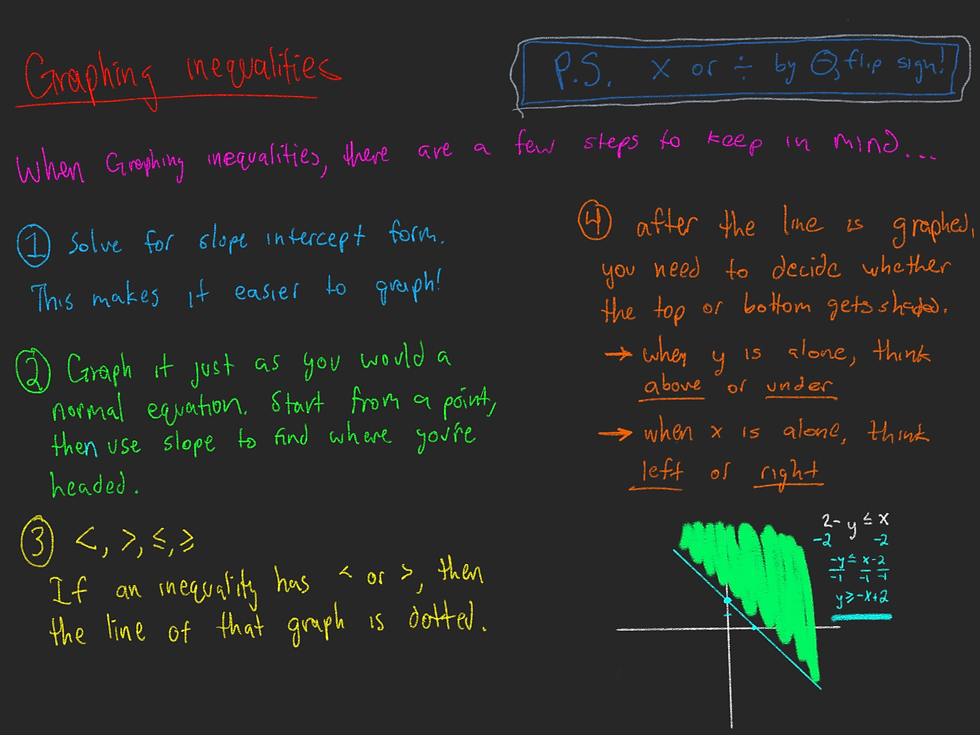 Graphing inequalities
P.S. x or ÷ by ⊖, flip sign!
When Graphing inequalities, there are a few steps to keep in mind...
① Solve for slope intercept form.
This makes it easier to graph!
② Graph it just as you would a
normal equation. Start from a point,
then use slope to find where you're
headed.
③ <, >, ≤, ≥
If an inequality has < or >, then
the line of that graph is dotted.
④ after the line is graphed,
you need to decide whether
the top or bottom gets shaded.
→ when y is alone, think
above or under
→ when x is alone, think
left or right
2-y ≤ x
-2 -2
-y ≤ x-2
-1 -1 -1
y ≥ -x+2